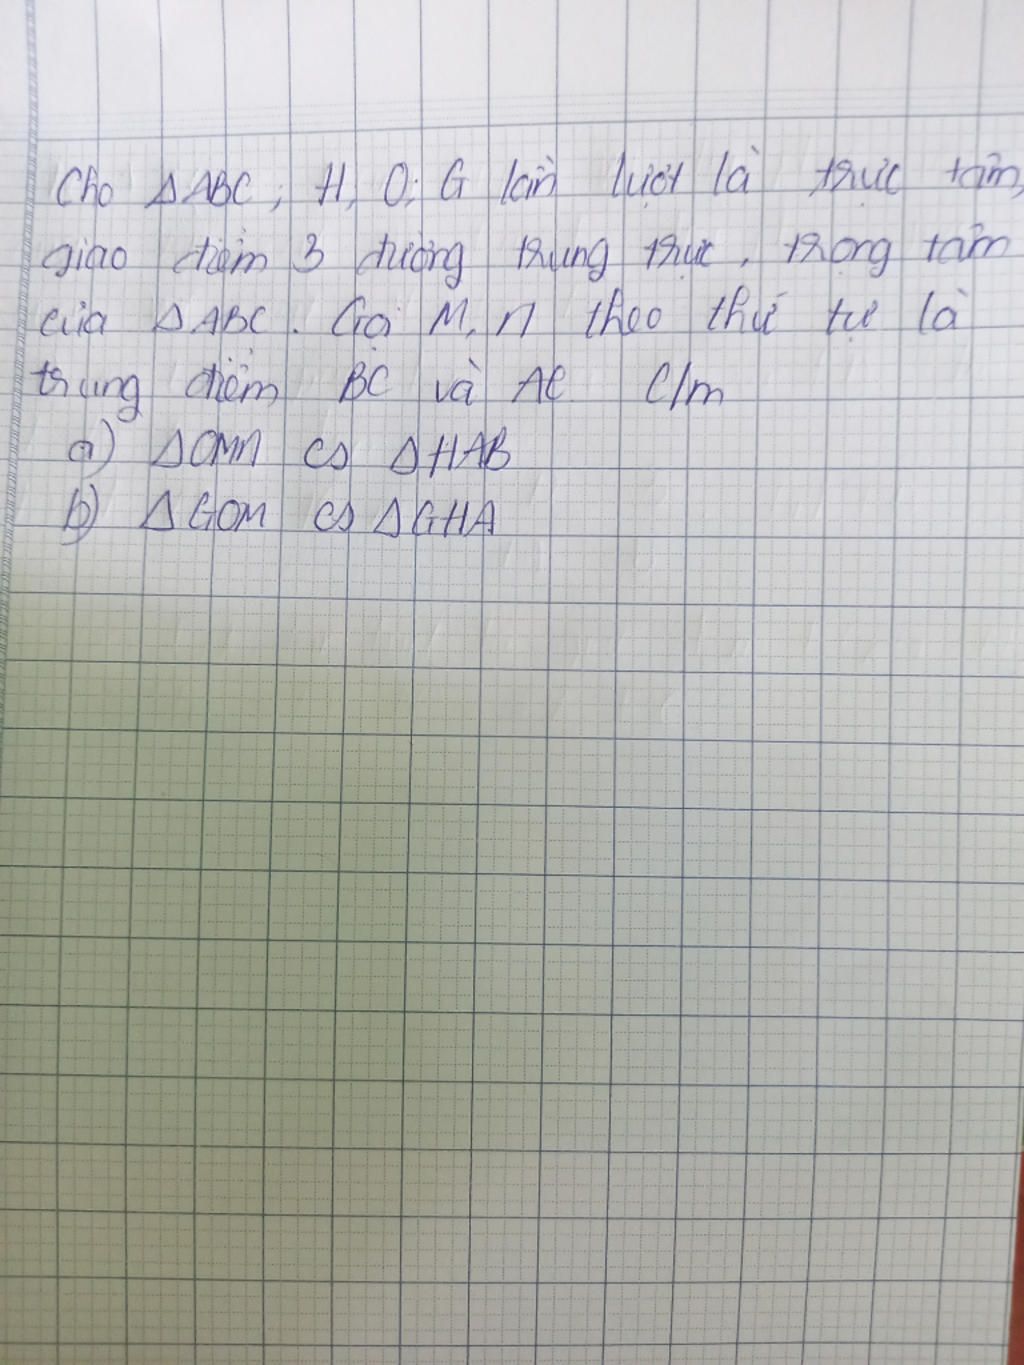 Cho △ABC; H, O; G lần lượt là trực tâm,
giao điểm 3 đường trung trực, trọng tâm
của △ABC. Gọi M, N theo thứ tự là
trung điểm BC và AC C/m
a) △OMN ∽ △HAB
b) △GOM ∽ △GHA